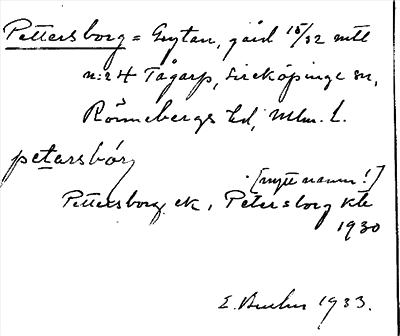 Pettersborg = Grytan, gård 15/32 mtl
n:r 4 Tågarp, Sireköpinge sn,
Rönnebergs hd, Mlm. l.
petarsbórj
[nytt namn!]
Pettersborg ek, Petersborg Kte
1930
E. 1933.